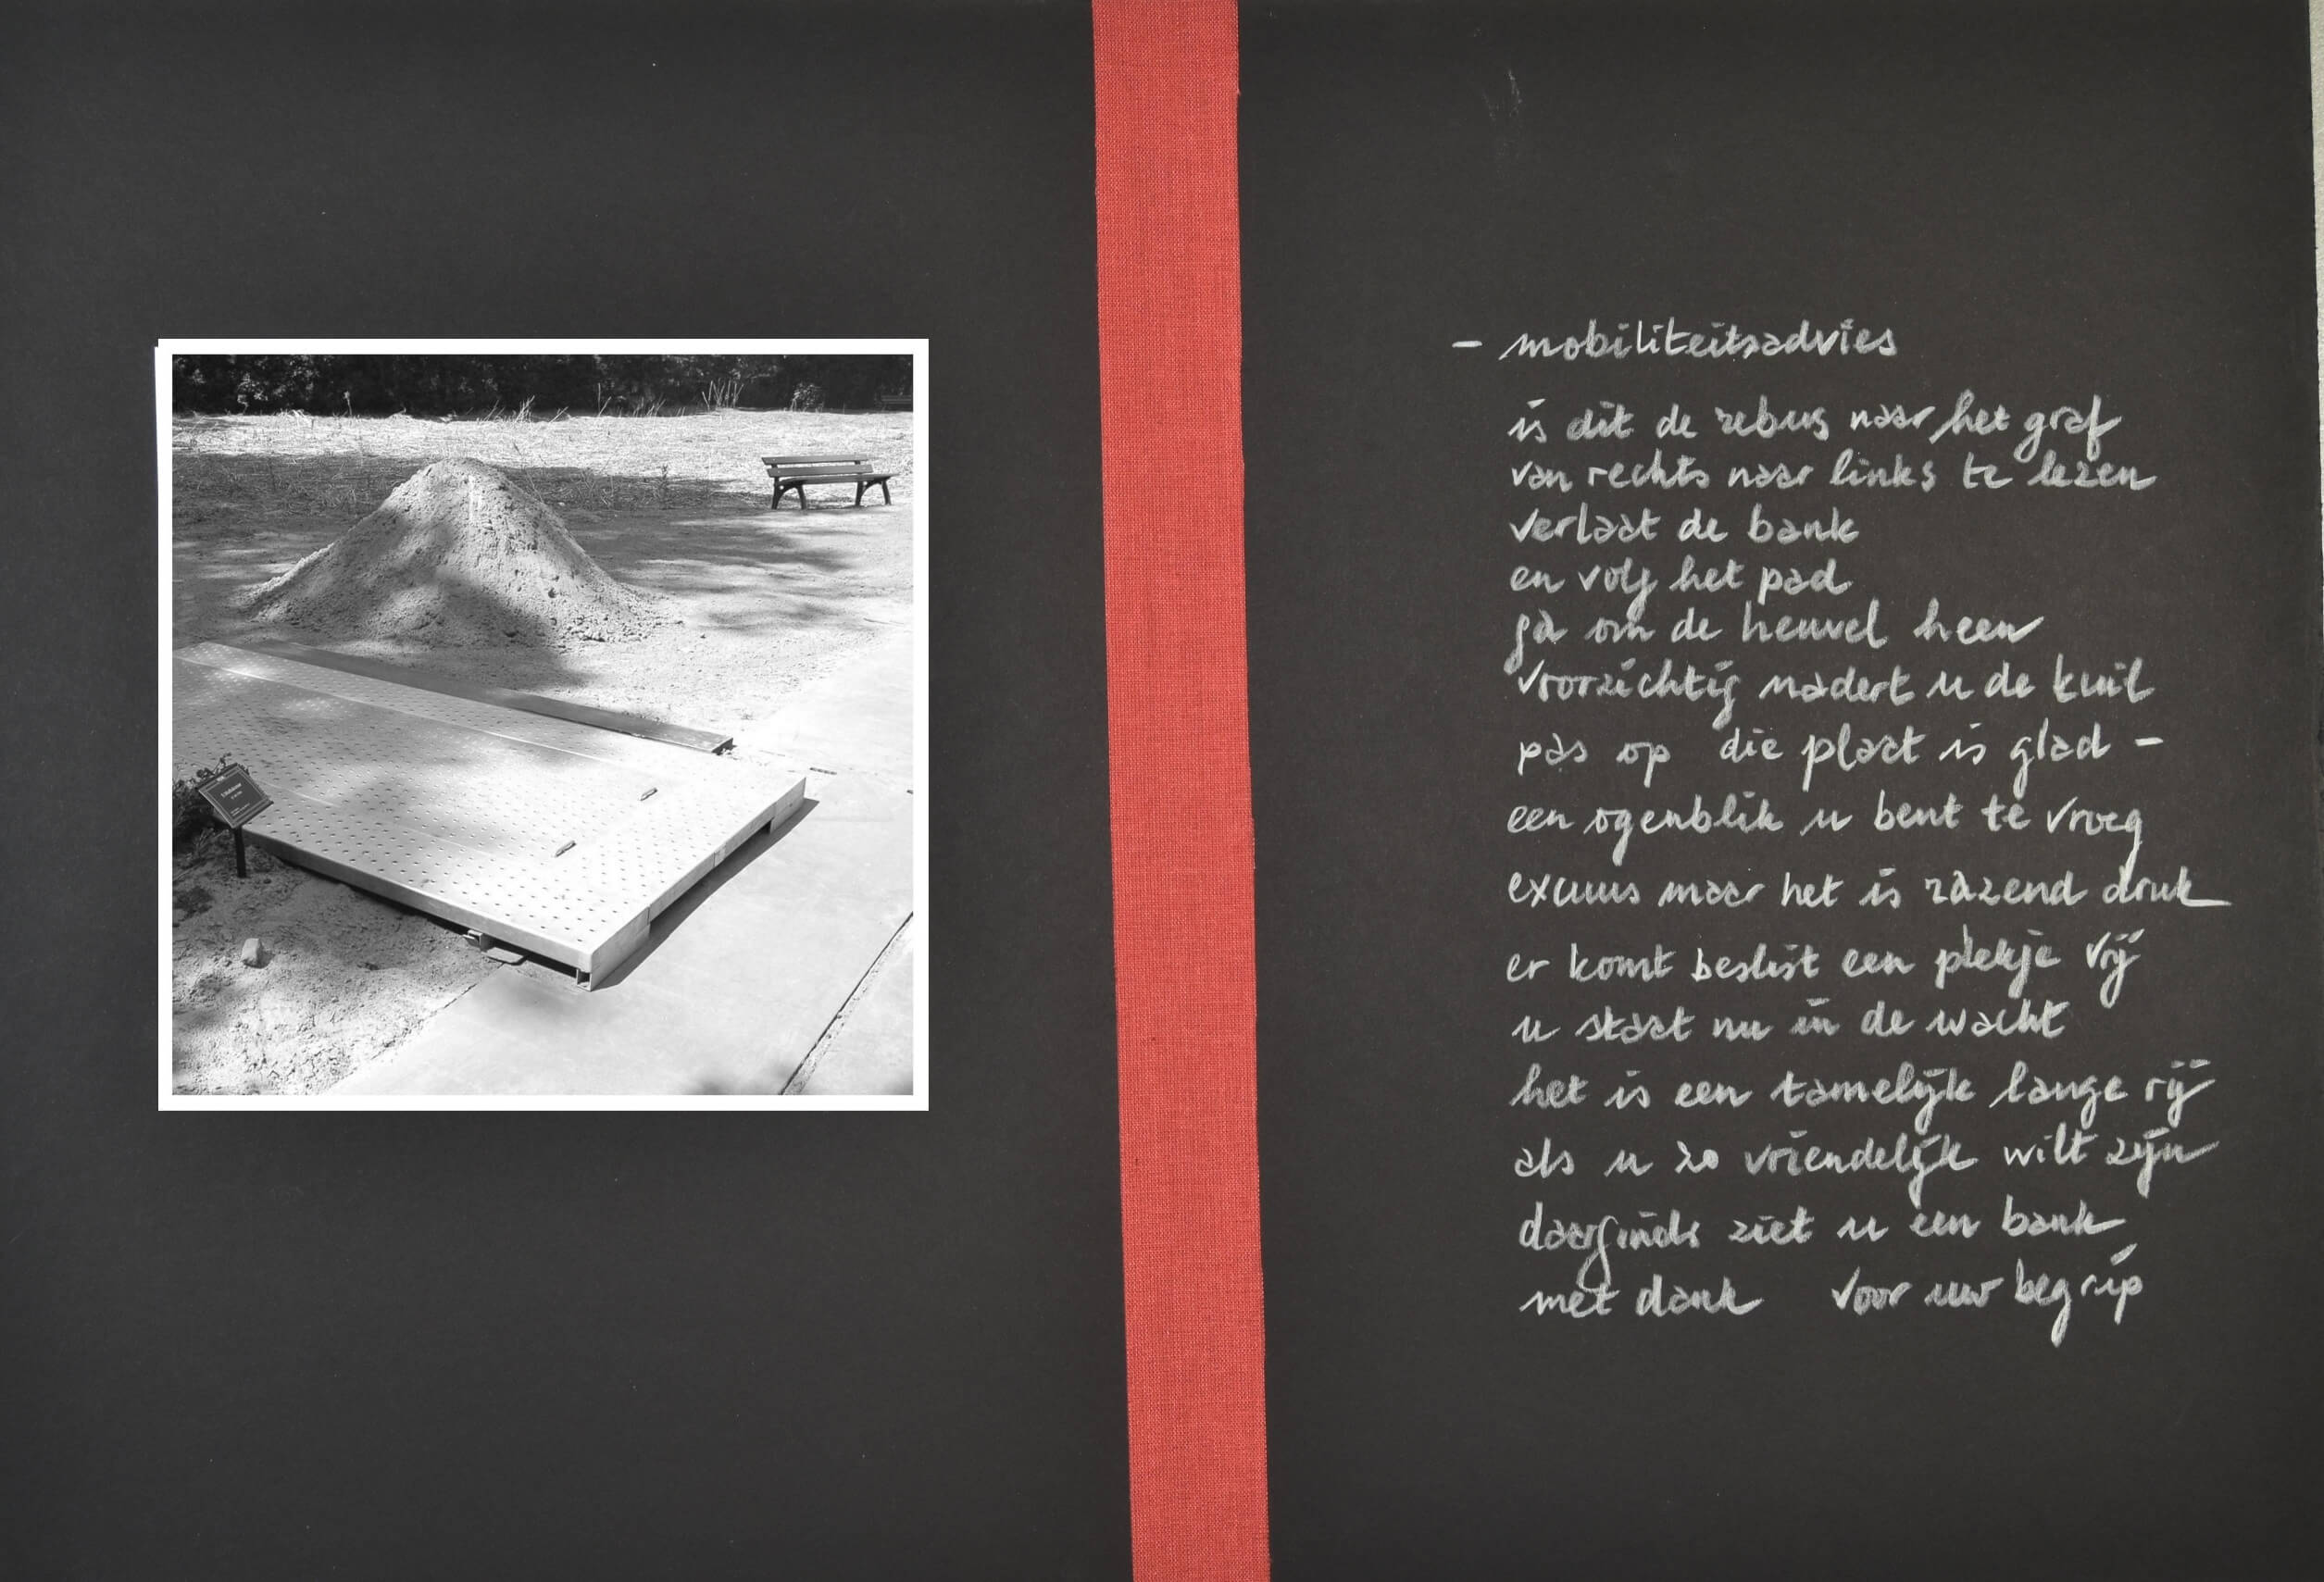 – mobiliteitsadvies
is dit de rebus naar het graf
van rechts naar links te lezen
verlaat de bank
en volg het pad
ga om de heuvel heen
voorzichtig nadert u de kuil
pas op die plaat is glad –
een ogenblik u bent te vroeg
excuus maar het is razend druk
er komt beslist een plekje vrij
u staat nu in de wacht
het is een tamelijk lange rij
als u zo vriendelijk wilt zijn
daarginds ziet u een bank
met dank voor uw begrip